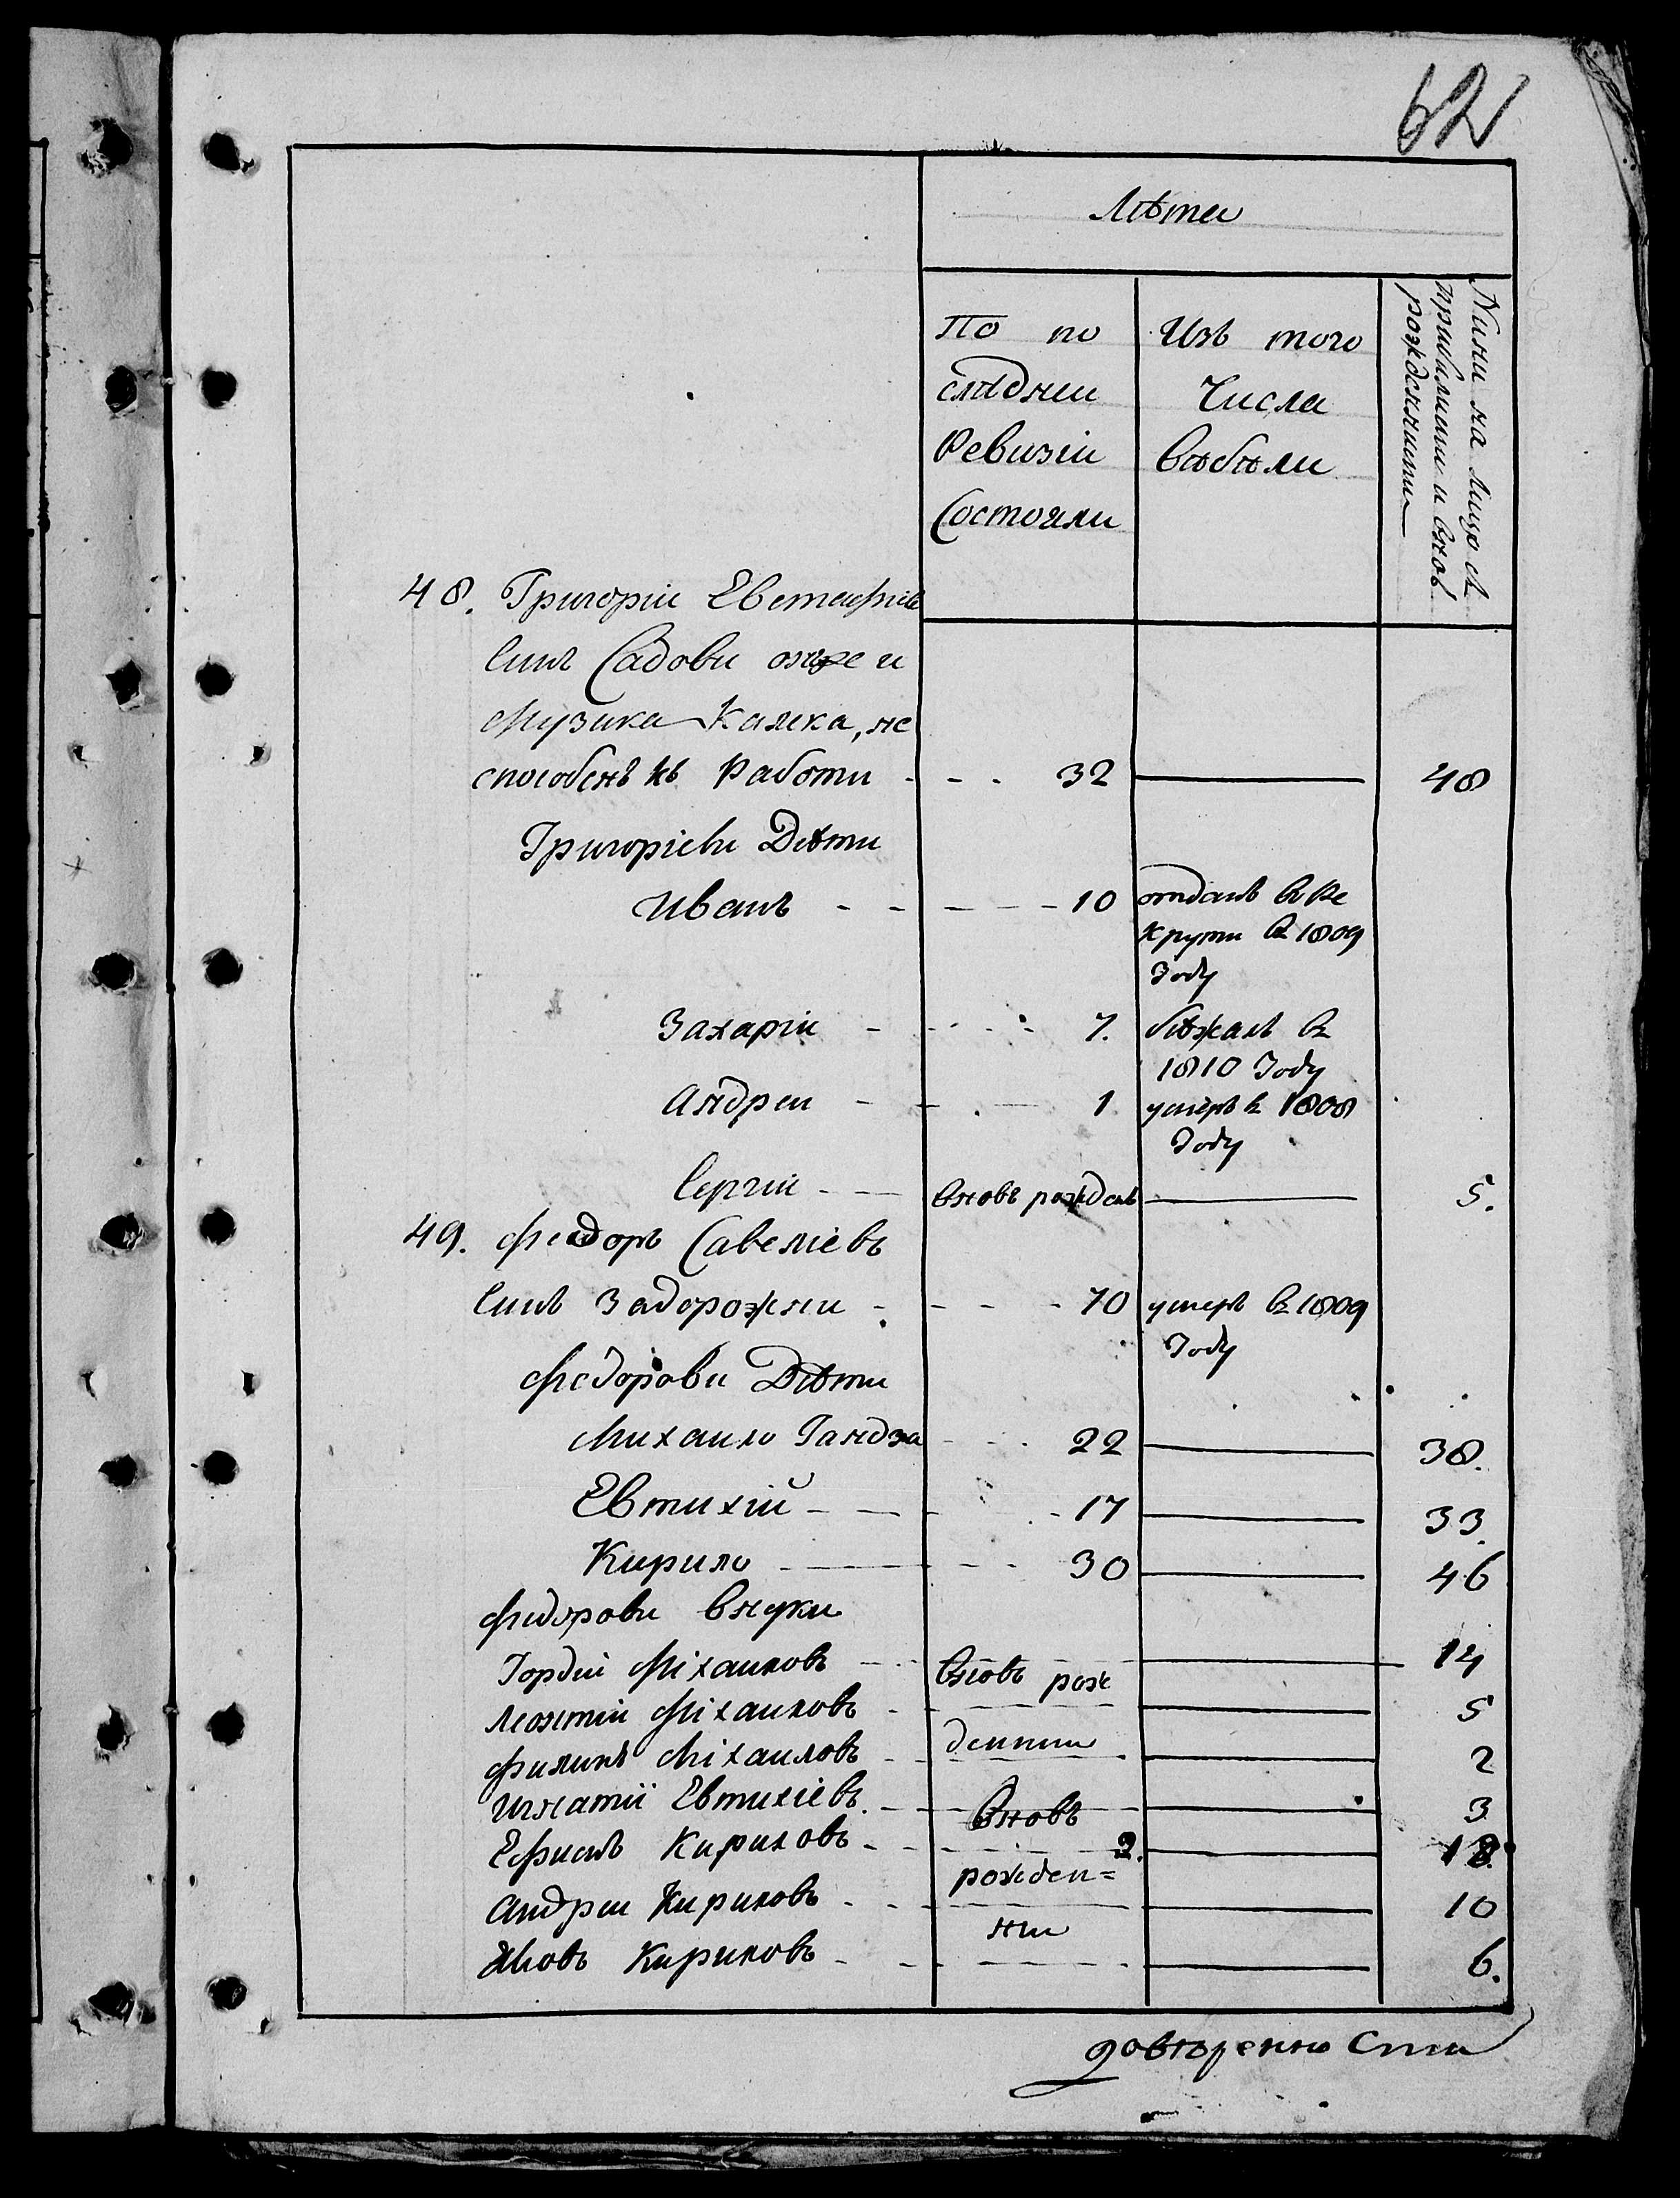 62
Лѣта
По по
слѣднеи
Ревизіи
Состояли
Изъ того
Числа
выбыли
Нини на лицо съ
прибилими и внов
рожденними
48. Григоріи Евстафіев
Синъ Садови онже и
Музика Калека, не
способенъ къ Работи - - - 32 48
Григоріеви Дѣти
Иванъ - - - - - 10 отданъ въ Ре
крути въ 1809
Году
Захаріи - - - - 7. бѣжалъ въ
1810 Году
Андреи - - - 1 умеръ въ 1808
Году
Сергіи - - вновъ рожденъ 5.
49. Феодоръ Савеліевъ
Синъ Задорожни - - - - 70 умеръ въ 1809
Году
Федорови Дѣти
Михаило Гандза - - 22 38.
Евтихій - - - - 17 33.
Кирило - - - 30 46
Федорови внуки
Гордіи Міхаиловъ - - вновъ рож 14
Леонтіи Міхаиловъ - - 5
Филипъ Міхаиловъ - - денним 2
Игнатіі Евтихіевъ. - - вновъ 3
Ефимъ Кириловъ - - 2. 18.
рожден=
Андреи Кириловъ - - 10
ни
Яковъ Кириловъ - - - 6.
довѣренно Сти